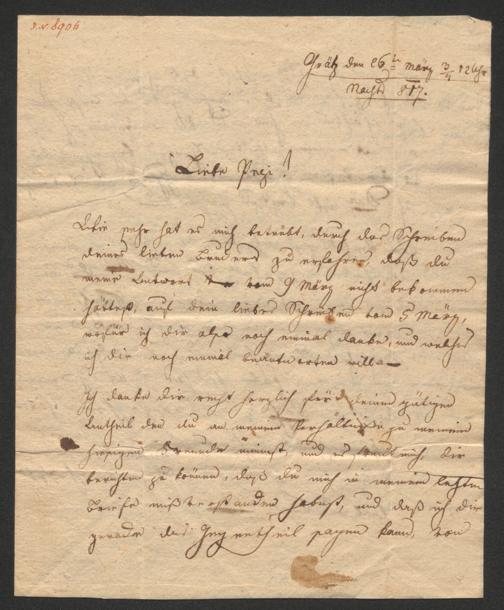 I.N. 8906
Grätz den 26ᵗ März 3/4 12 Uhr
Nachts 817.
Liebe Pepi!
Wie sehr hat es mich betrübt, durch das Schreiben
deines lieben Bruders zu erfahren, daß du
meine Antwort vom 9 März nicht bekommen
hättest, auf dein liebes Schreiben vom 5 März,
wofür ich dir aber noch einmal danke, und welches
ich dir noch einmal beantworten will. —
Ich danke dir recht herzlich für deinen gütigen
Antheil den du an meinem Verhältniße zu meinem
hiesigen Freunde nimmst und es freut mich dir
berichten zu können, daß du mich in meinem letzten
Briefe mißverstanden habest, und daß ich dir
gerade das Gegentheil sagen kann, von